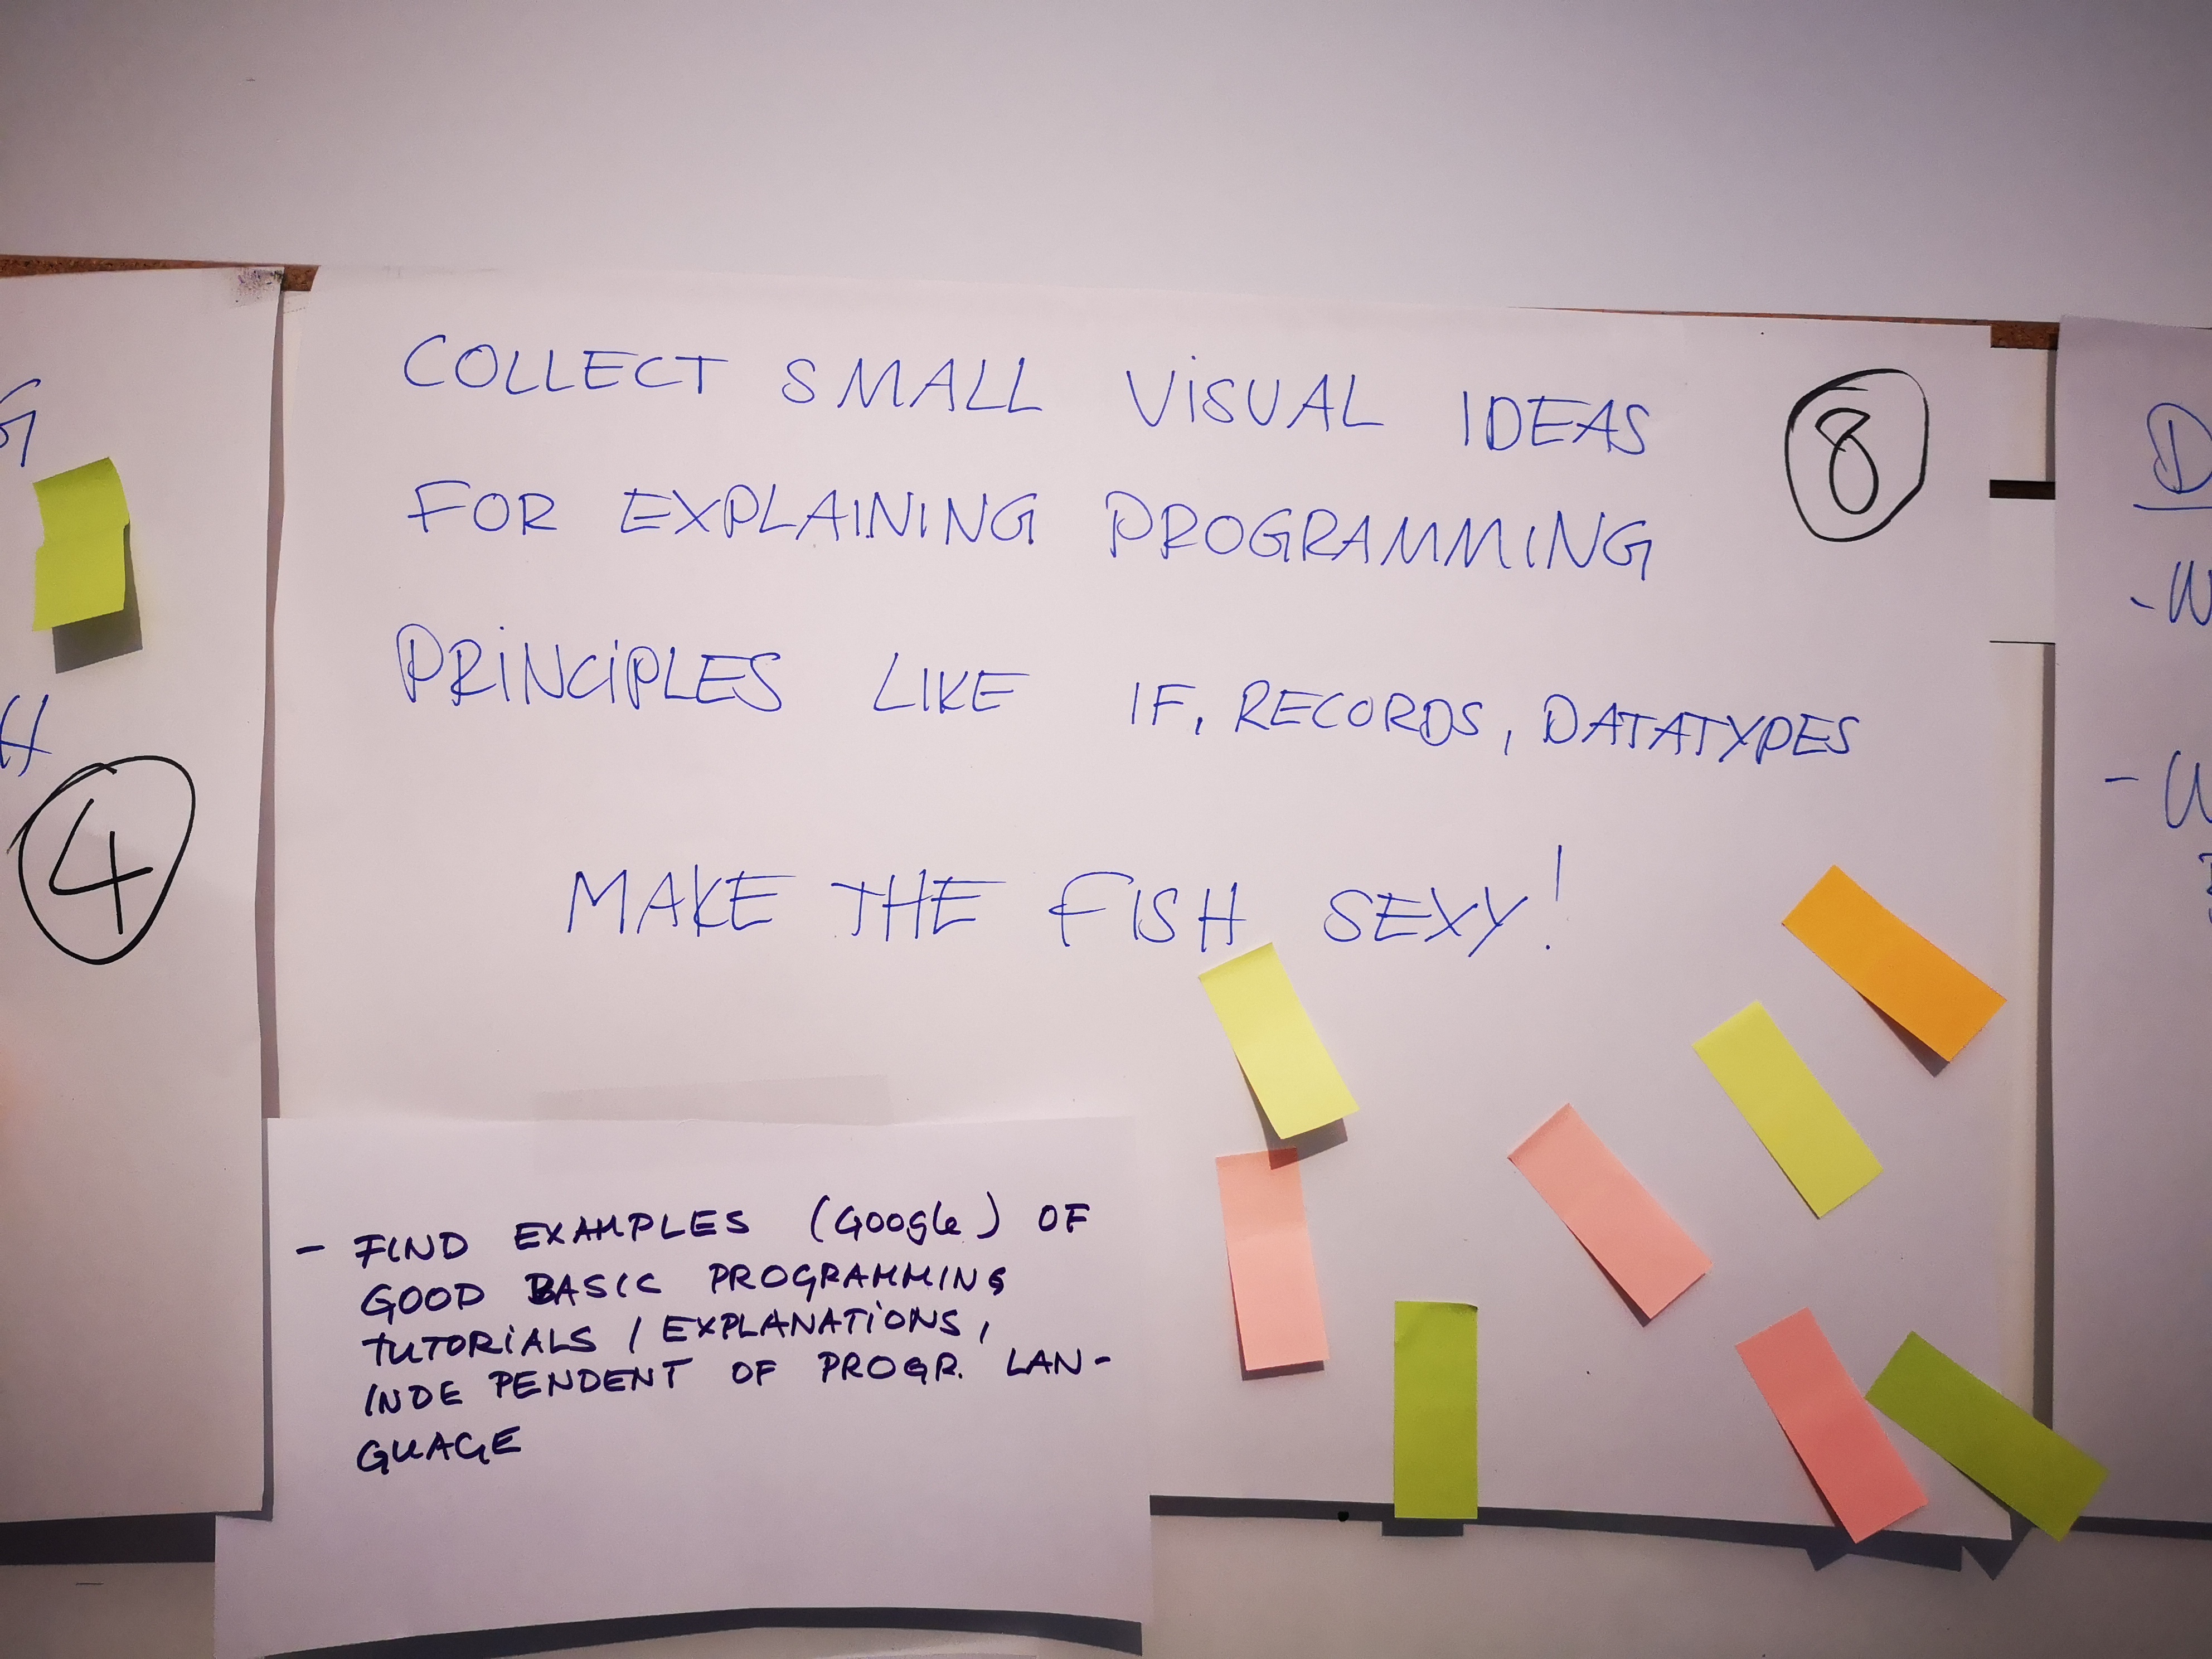 G
H
4
COLLECT SMALL VISUAL IDEAS
8
FOR EXPLAINING PROGRAMMING
PRINCIPLES LIKE IF, RECORDS, DATATYPES
MAKE THE FISH SEXY!
- FIND EXAMPLES (Google) OF
GOOD BASIC PROGRAMMING
TUTORIALS / EXPLANATIONS,
INDEPENDENT OF PROGR. LAN-
GUAGE
D
- W